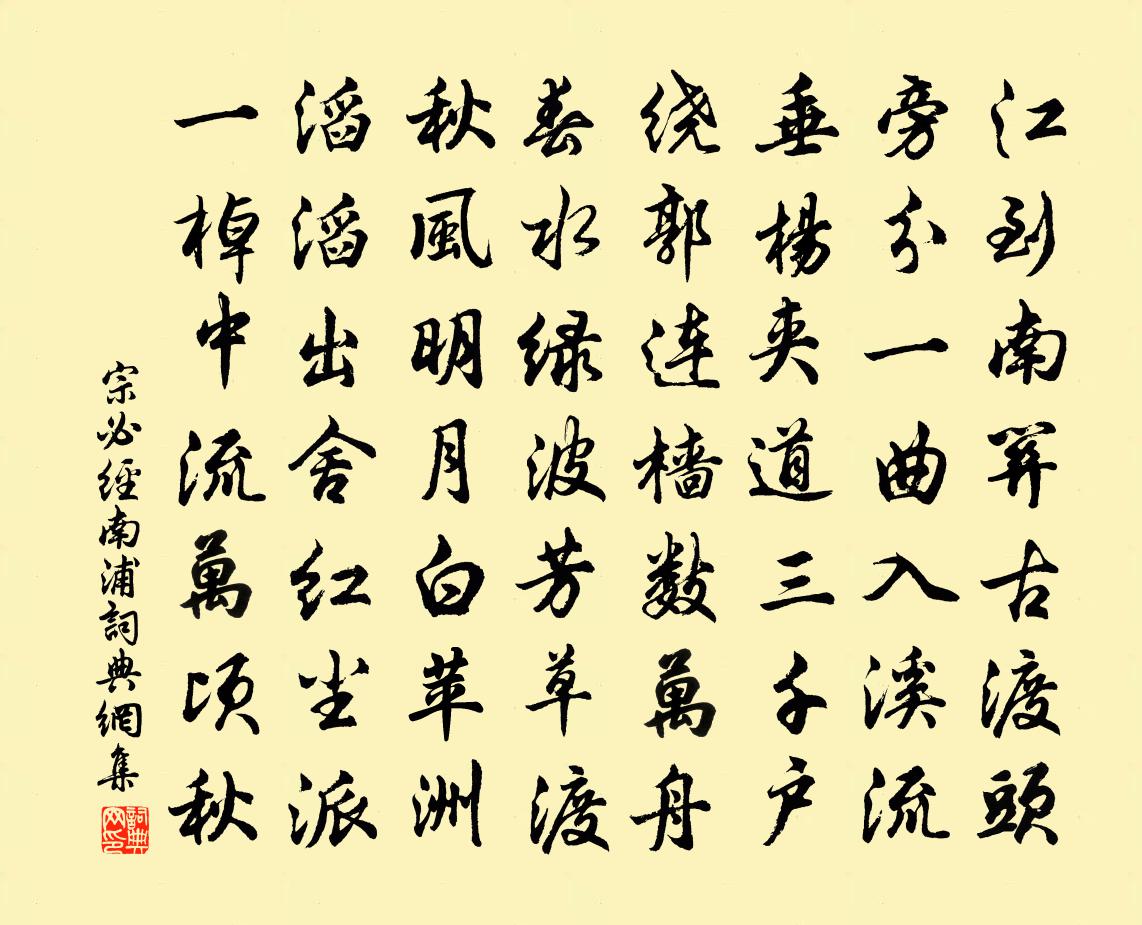 江到南開古渡頭
旁分一曲入溪流
垂楊夾道三千户
绕郭連檣數萬舟
春水绿波芳草渡
秋風明月白苹洲
滔滔出舍红尘派
一棹中流萬頃秋
宗必經南浦詞典網集
詞典网印